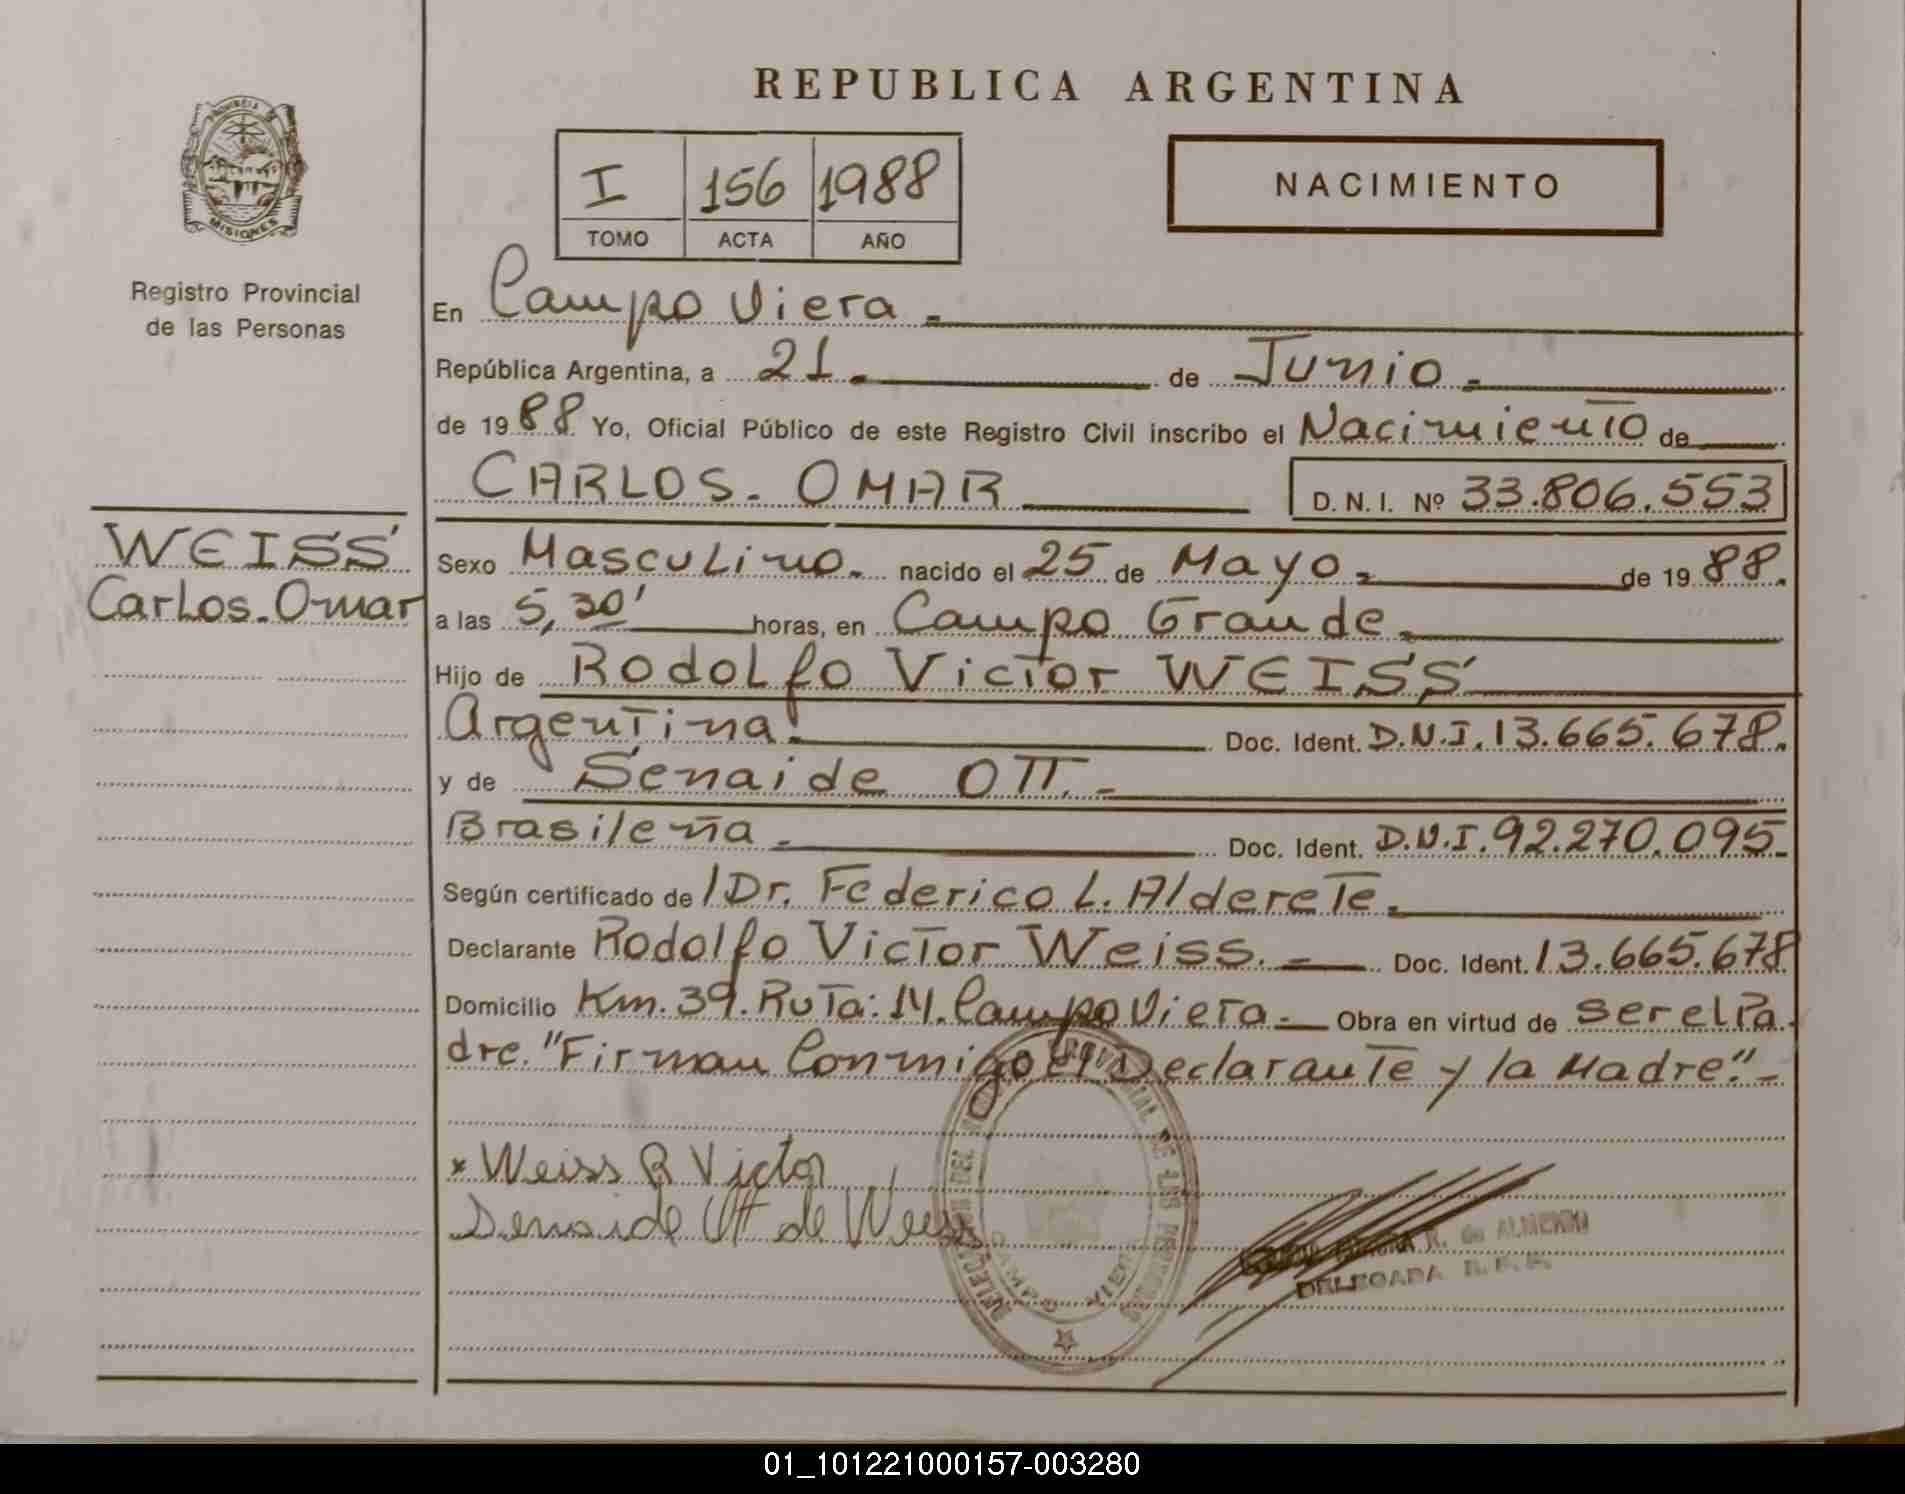 REPUBLICA ARGENTINA
PROVINCIA DE
MISIONES
Registro Provincial
de las Personas
I 156 1988
TOMO ACTA AÑO
NACIMIENTO
En Campo Viera.
República Argentina, a 21. de Junio.
de 1988 Yo, Oficial Público de este Registro Civil inscribo el Nacimiento de
CARLOS. OMAR D. N. I. Nº 33.806.553
WEISS
Carlos. Omar
Sexo Masculino. nacido el 25 de Mayo. de 1988.
a las 5,30' horas, en Campo Grande.
Hijo de Rodolfo Victor WEISS
Argentina. Doc. Ident. D.N.I. 13.665.678.
y de Senaide OTT.
Brasileña. Doc. Ident. D.N.I. 92.270.095
Según certificado de / Dr. Federico L. Alderete.
Declarante Rodolfo Victor Weiss. Doc. Ident. 13.665.678
Domicilio Km. 39. Ruta: 14. Campo Viera. Obra en virtud de ser el Pa
dre. "Firman Conmigo el Declarante y la Madre".
x Weiss R Victor
Senaide Ott de Weiss
DELEGACION DEL PROVINCIAL DE LAS PERSONAS
CAMPO VIERA
R. de ALMEIDA
DELEGADA R. P. P.
01_101221000157-003280